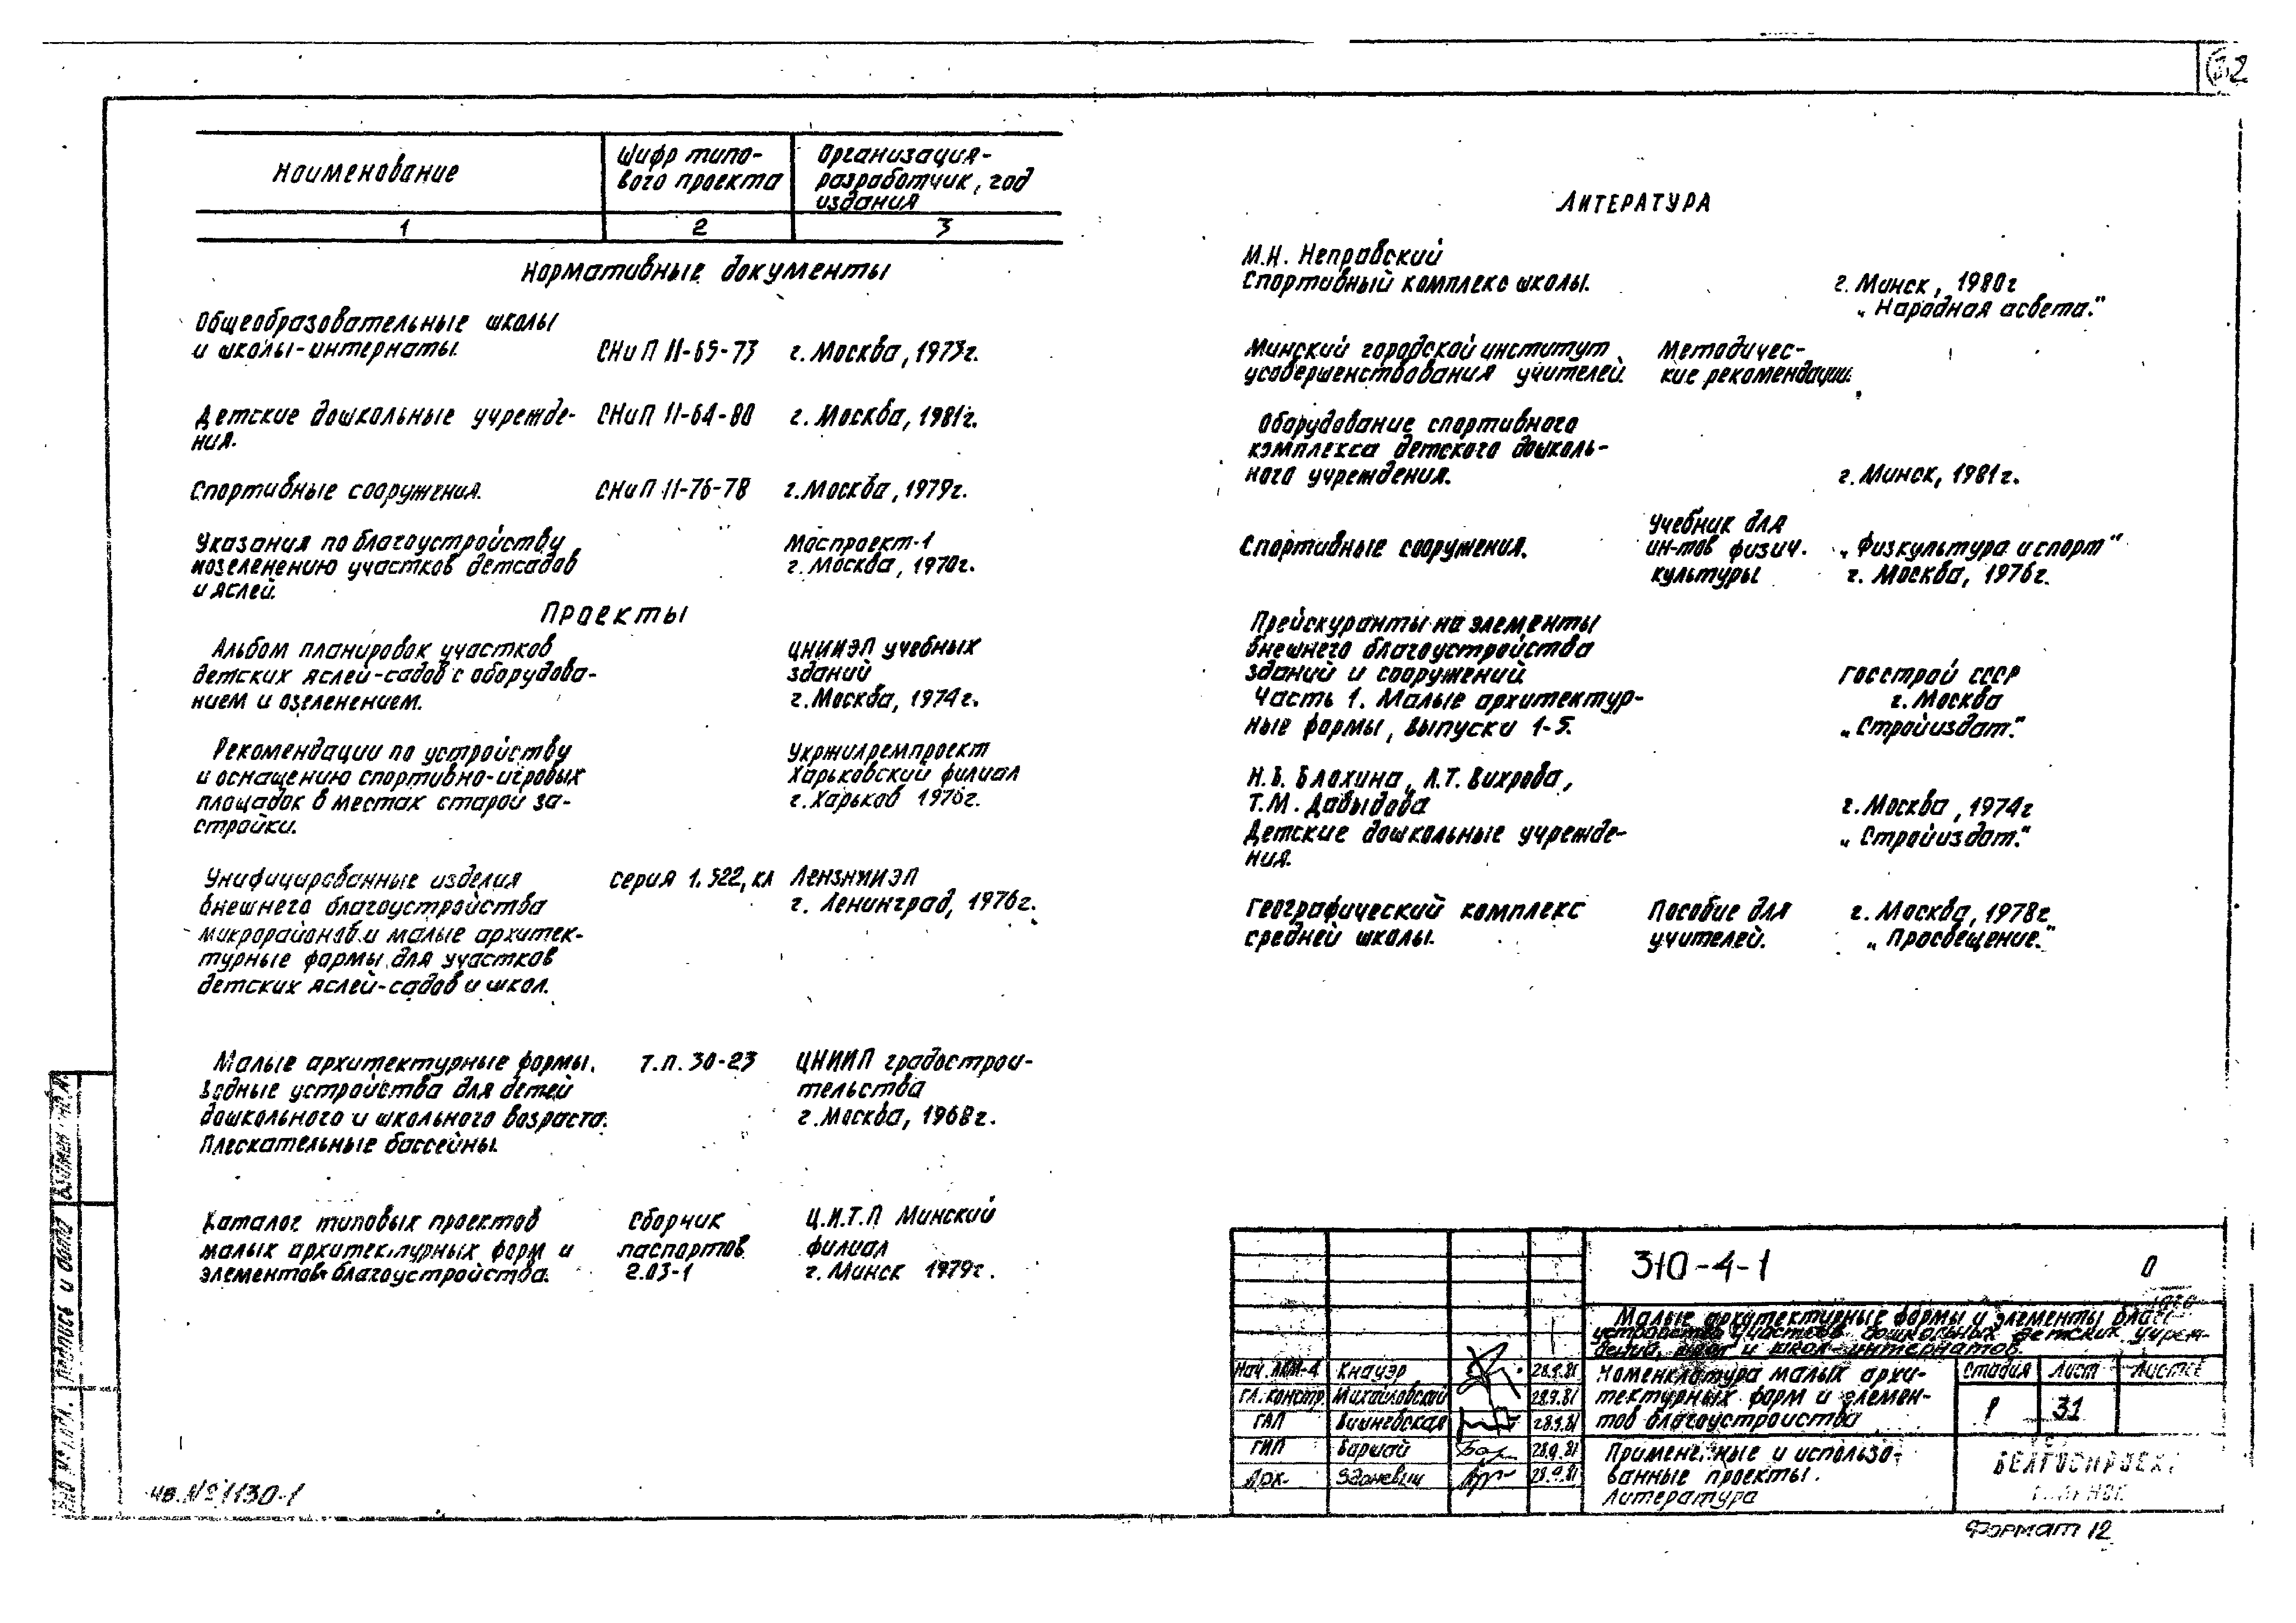 32
Наименование
Шифр типо-
вого проекта
Организация-
разработчик, год
издания
1
2
3
Нормативные документы
Общеобразовательные школы
и школы-интернаты.
СНиП II-65-73
г. Москва, 1973г.
Детские дошкольные учрежде-
ния.
СНиП II-64-80
г. Москва, 1981г.
Спортивные сооружения.
СНиП II-76-78
г. Москва, 1979г.
Указания по благоустройству
и озеленению участков детсадов
и яслей.
Моспроект-1
г. Москва, 1970г.
Проекты
Альбом планировок участков
детских яслей-садов с оборудова-
нием и озеленением.
ЦНИИЭП учебных
зданий
г. Москва, 1974г.
Рекомендации по устройству
и оснащению спортивно-игровых
площадок в местах старой за-
стройки.
Укржилремпроект
Харьковский филиал
г. Харьков 1976г.
Унифицированные изделия
внешнего благоустройства
микрорайонов и малые архитек-
турные формы для участков
детских яслей-садов и школ.
серия 1.522, КЛ
ЛенЗНИИЭП
г. Ленинград, 1976г.
Малые архитектурные формы.
Водные устройства для детей
дошкольного и школьного возраста.
Плескательные бассейны.
Т.П. 30-23
ЦНИИП градострои-
тельства
г. Москва, 1968г.
Каталог типовых проектов
малых архитектурных форм и
элементов благоустройства.
Сборник
паспортов
2.03-1
Ц.И.Т.П Минский
филиал
г. Минск 1979г.
Литература
М.Н. Неправский
Спортивный комплекс школы.
г. Минск, 1980г
„Народная асвета."
Минский городской институт
усовершенствования учителей.
Методичес-
кие рекомендации.
Оборудование спортивного
комплекса детского дошколь-
ного учреждения.
г. Минск, 1981г.
Спортивные сооружения.
Учебник для
ин-тов физич.
культуры
„Физкультура и спорт"
г. Москва, 1976г.
Прейскуранты на элементы
внешнего благоустройства
зданий и сооружений.
Часть 1. Малые архитектур-
ные формы, выпуски 1-5.
Госстрой СССР
г. Москва
„Стройиздат."
Н.Б. Блохина, А.Т. Вихрова,
Т.М. Давыдова
Детские дошкольные учрежде-
ния.
г. Москва, 1974г
„Стройиздат."
Географический комплекс
средней школы.
Пособие для
учителей.
г. Москва, 1978г.
„Просвещение."
310-4-1
0
Малые архитектурные формы и элементы благо-
устройства участков дошкольных детских учреж-
дений, школ и школ-интернатов.
Нач. АКМ-4 Кнауэр 28.9.81
Гл. констр. Михайловский 28.9.81
ГАП Вишневская 28.9.81
ГИП Баршай 28.9.81
Арх. Зданевич 28.9.81
Номенклатура малых архи-
тектурных форм и элемен-
тов благоустройства
Стадия Лист Листов
Р 31
Примененные и использо-
ванные проекты.
Литература
БЕЛГОСПРОЕКТ
г. МИНСК
Формат 12
Взамен инв.
Подпись и дата
Инв № подл.
Инв. № 1130-1